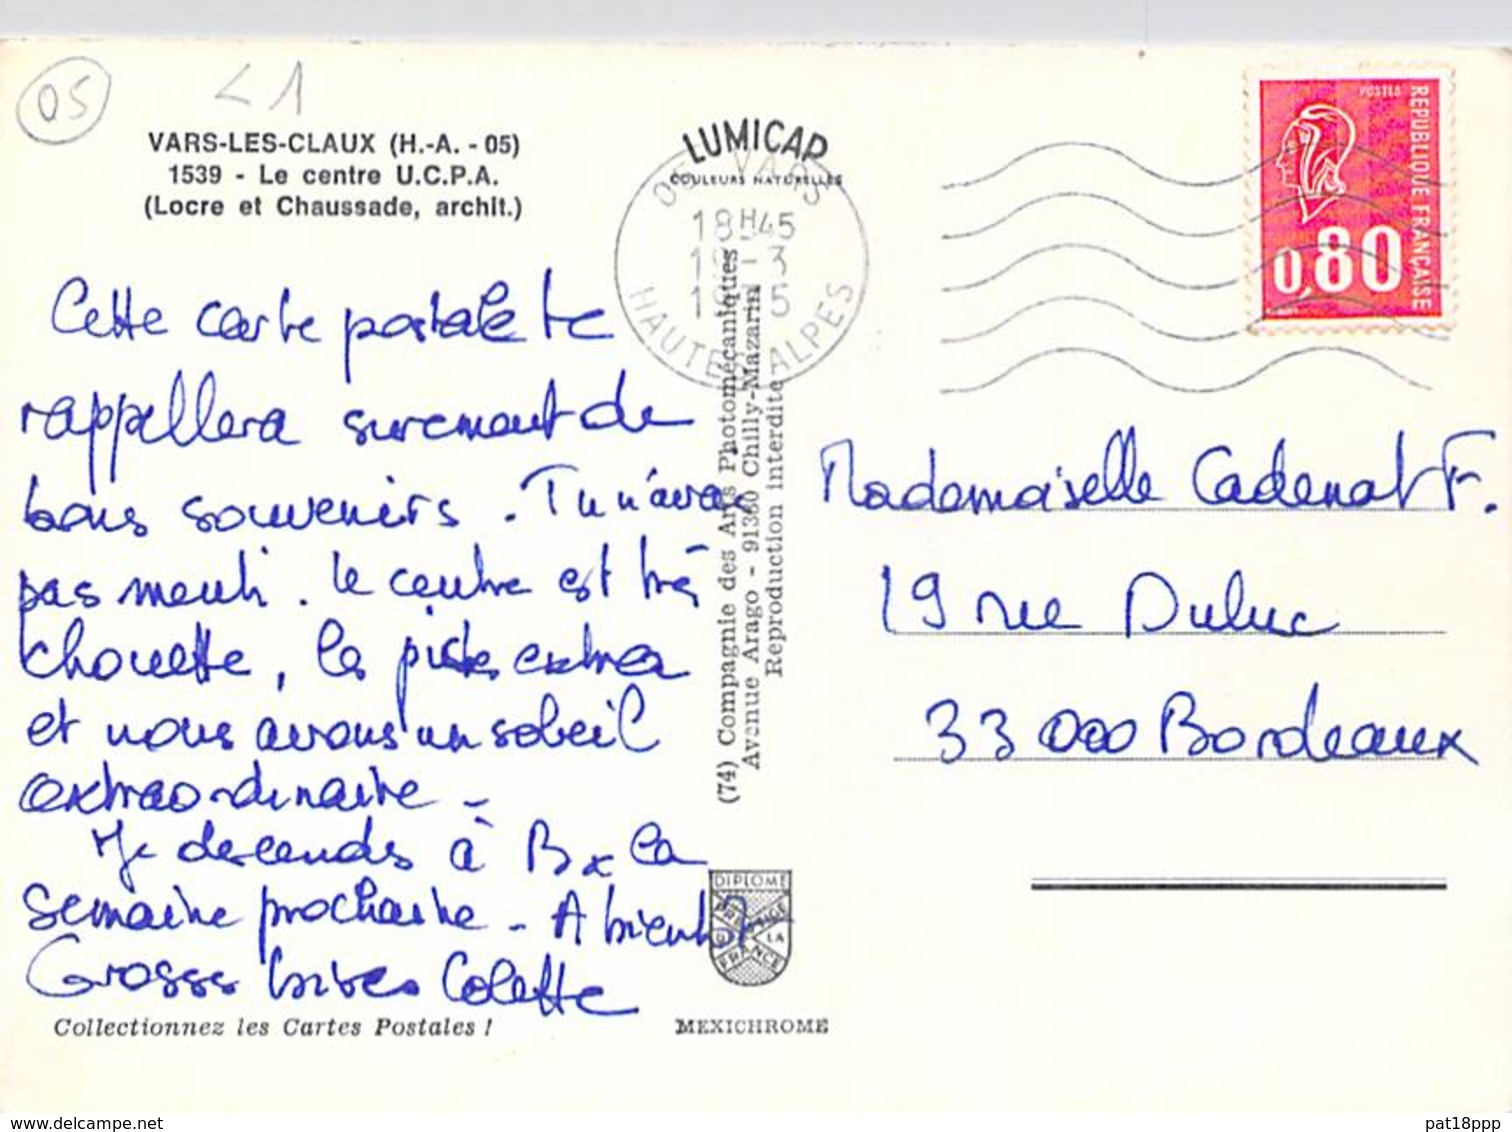 05
< 1
VARS-LES-CLAUX (H.-A. - 05)
1539 - Le centre U.C.P.A.
(Locre et Chaussade, archit.)
Cette carte postale te
rappellera surement de
bons souvenirs. Tu n'avais
pas menti. Le centre est très
chouette, les pistes extra
et nous avons un soleil
extraordinaire -
Je descends à Bx la
semaine prochaine - A bientôt
Grosses bises Colette
Collectionnez les Cartes Postales !
LUMICAP
COULEURS NATURELLES
05 VARS
18H45
-3
HAUTES ALPES
(74) Compagnie des Arts Photomécaniques
Avenue Arago - 91360 Chilly-Mazarin
Reproduction interdite
DIPLOME
PRESTIGE
DE LA
FRANCE
MEXICHROME
POSTES
REPUBLIQUE FRANÇAISE
0,80
Mademoiselle Cadenat F.
19 rue Duluc
33 000 Bordeaux
delcampe.net
pat18ppp